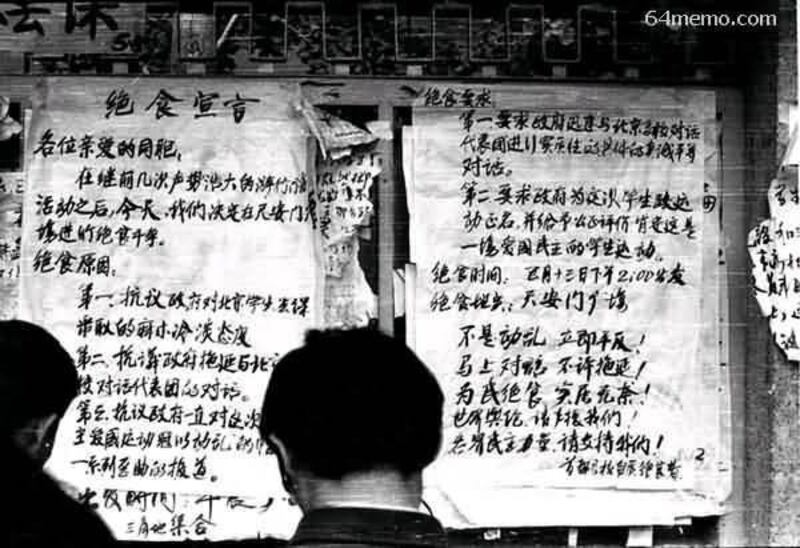 64memo.com
绝食宣言
各位亲爱的同胞:
在继前几次声势浩大的游行
活动之后,今天,我们决定在天安门
场进行绝食斗争。
绝食原因:
第一、抗议政府对北京学生罢课
采取的麻木冷淡态度
第二、抗议政府拖延与北
校对话代表团的对话。
第三、抗议政府一直对这次
主爱国运动冠以动乱的
一系列歪曲的报道。
出发时间:
三角地集合
绝食要求:
第一要求政府迅速与北京高校对话
代表团进行实质性的具体的真诚平等
对话。
第二要求政府为这次学生运
动正名,并给予公正评价肯定这是
一场爱国民主的学生运动。
绝食时间:五月十三日下午2:00出发
绝食地点:天安门广场
不是动乱 立即平反!
马上对话 不许拖延!
为民绝食 实属无奈!
世界舆论,请声援我们!
各界民主力量,请支持我们!
2
首都高校自愿绝食者